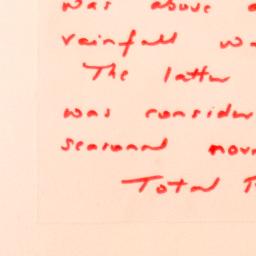 was above
rainfall wa
The latter
was consider
seasonal nor
Total